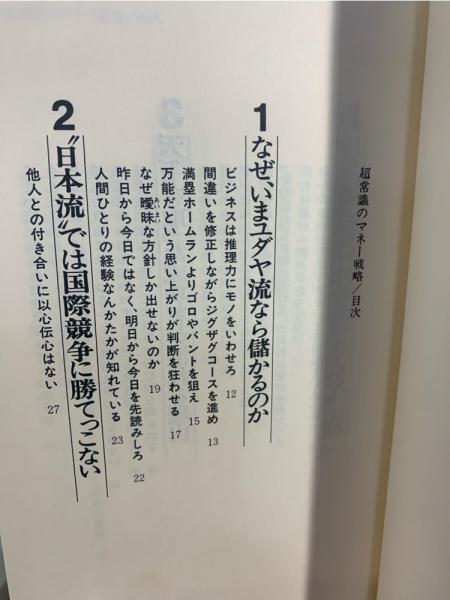 超常識のマネー戦略/目次
1 なぜ、いまユダヤ流なら儲かるのか
ビジネスは推理力にモノをいわせろ 12
間違いを修正しながらジグザグコースを進め 13
満塁ホームランよりゴロやバントを狙え 15
万能だという思い上がりが判断を狂わせる 17
なぜ曖昧な方針しか出せないのか 19
昨日から今日ではなく、明日から今日を先読みしろ 22
人間ひとりの経験なんかたかが知れている 23
2 〝日本流〟では国際競争に勝てっこない
他人との付き合いに以心伝心はない 27